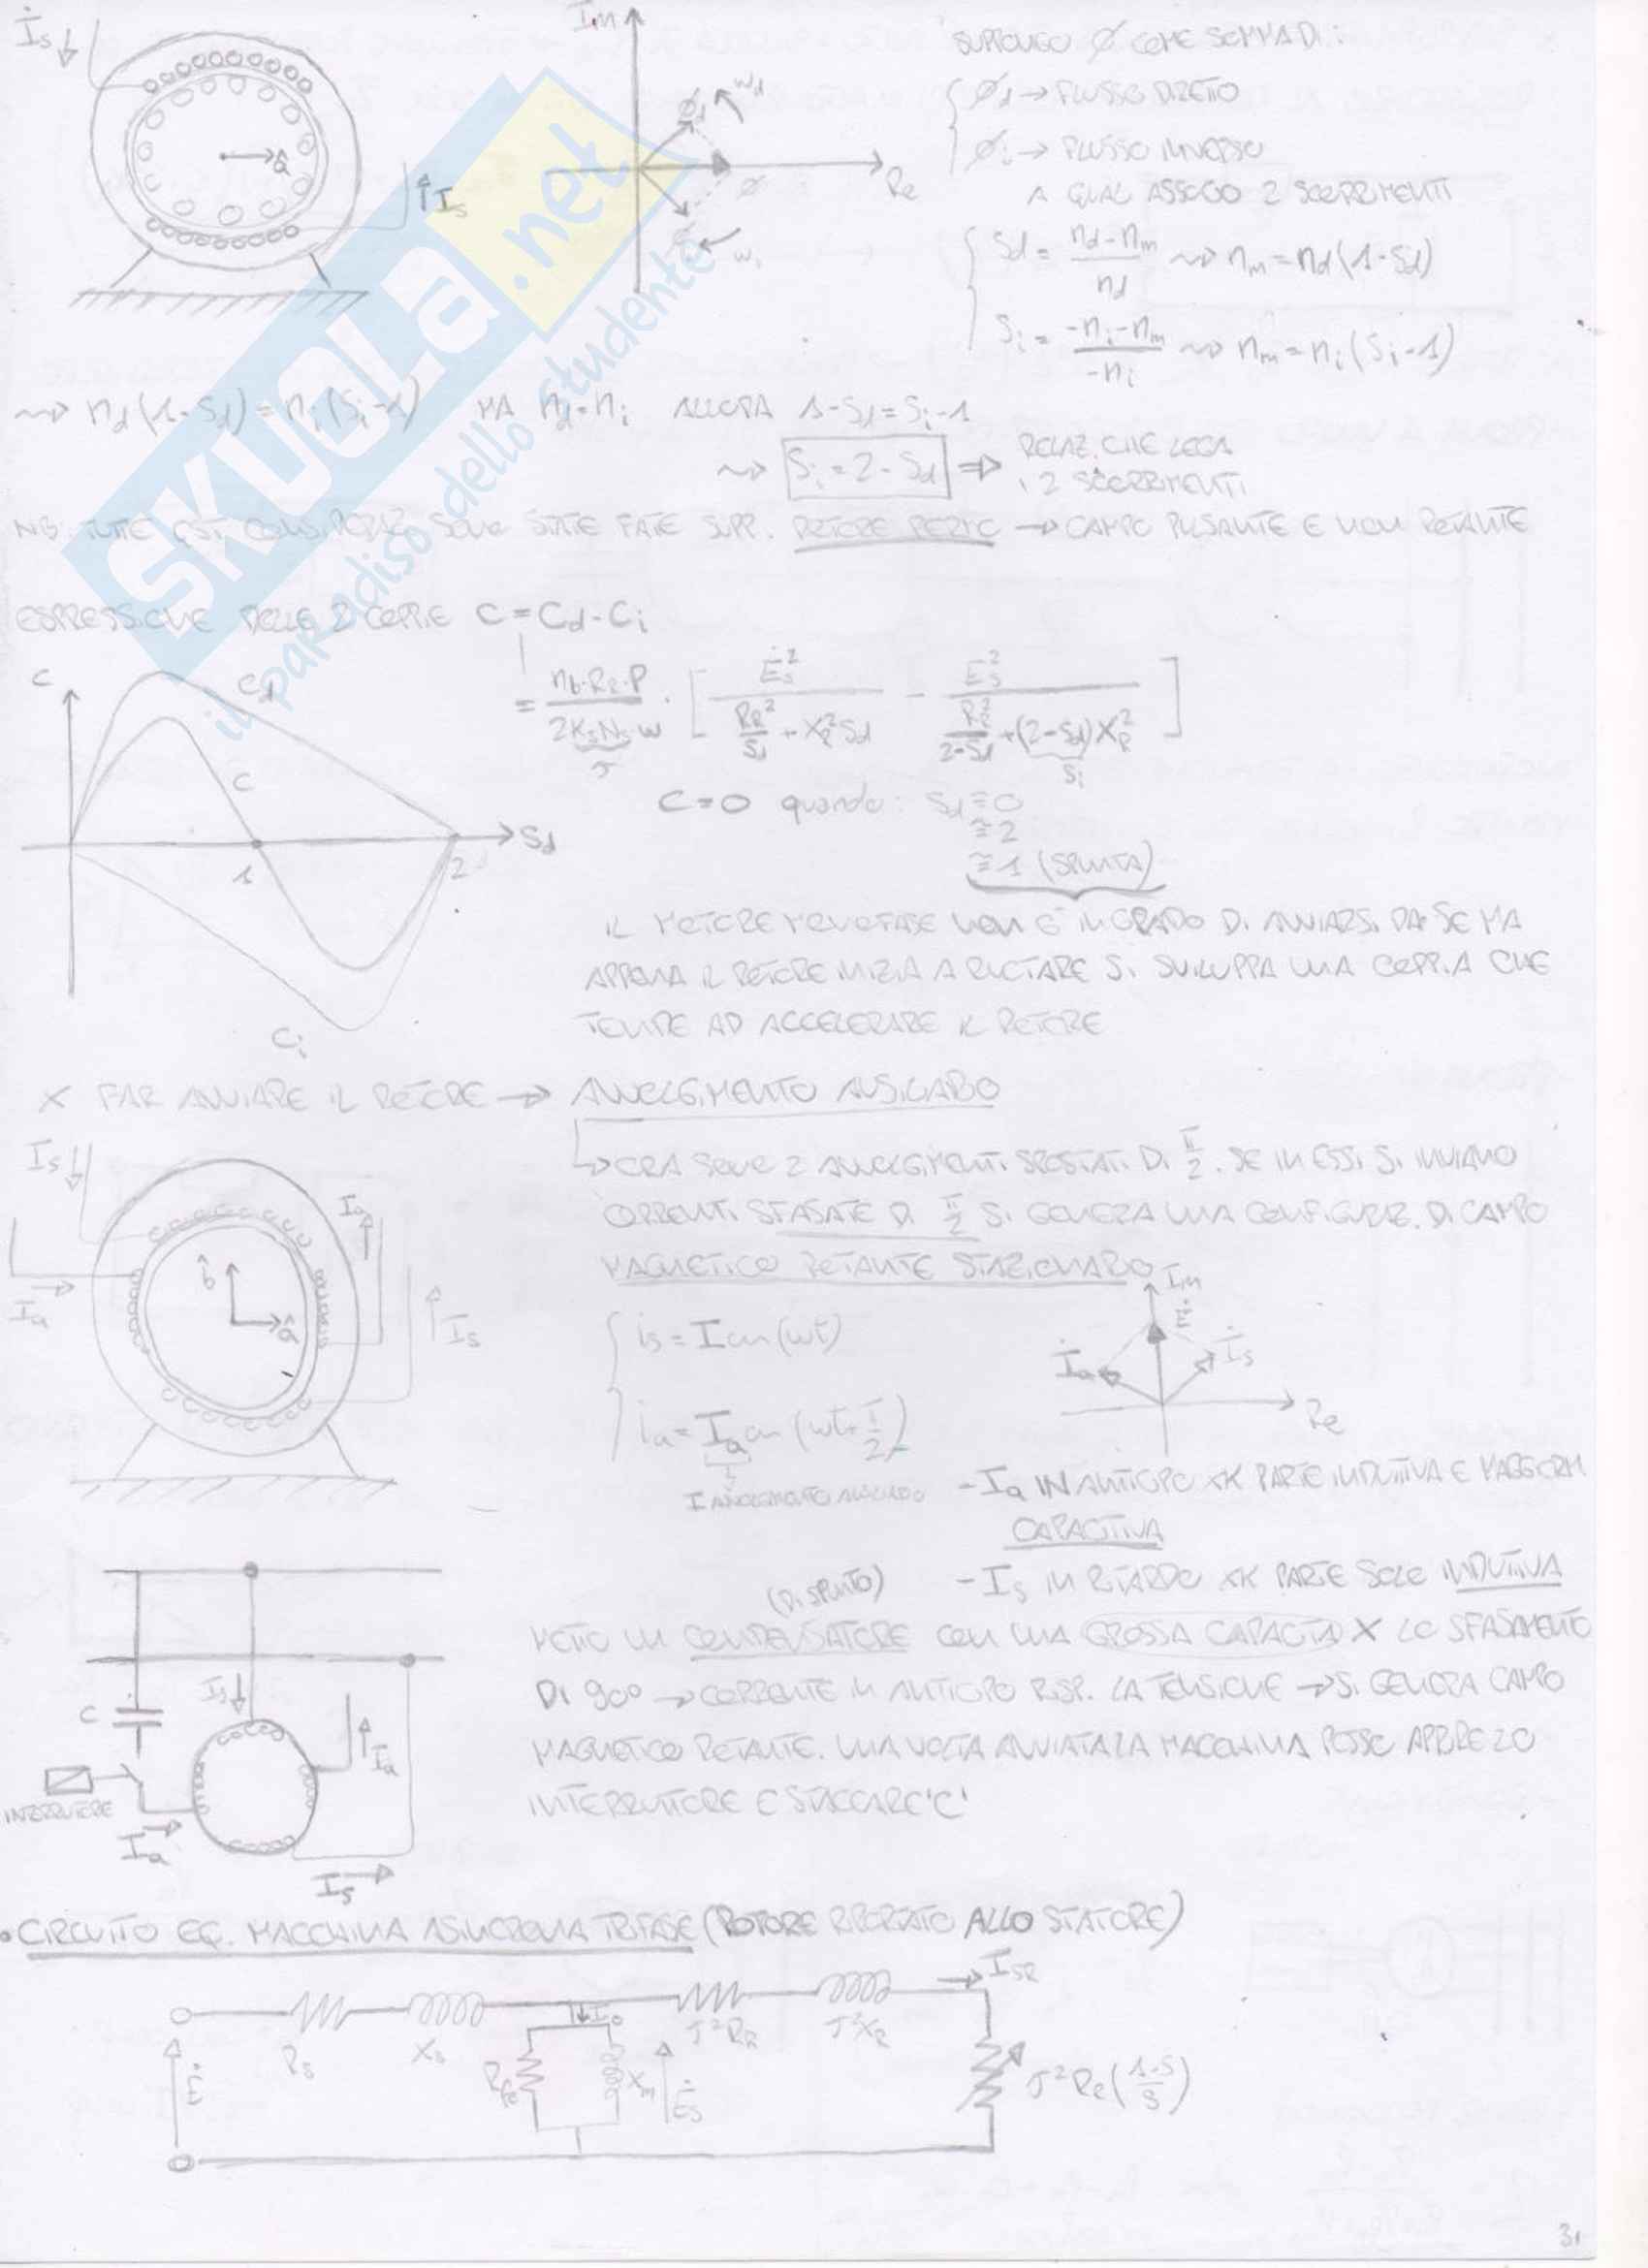 İs
Im
SUPPONGO Ø COME SOMMA DI:
Ød → FLUSSO DIRETTO
Øi → FLUSSO INVERSO
A QUALI ASSEGNO 2 SCORRIMENTI
Ød
ωd
Re
Ø
ωi
â
Is
Sd = (nd - nm)/nd ⇝ nm = nd(1-Sd)
Si = (-ni - nm)/(-ni) ⇝ nm = ni(Si-1)
⇝ nd(1-Sd) = ni(Si-1) MA nd = ni ALLORA 1-Sd = Si-1
⇝ Si = 2 - Sd ⇒ RELAZ. CHE LEGA
I 2 SCORRIMENTI
NB. TUTTE QST CONSIDERAZ. SONO STATE FATE SUPP. ROTORE FERMO → CAMPO PULSANTE E NON ROTANTE
ESPRESSIONE DELLE 2 COPPIE C = Cd - Ci
= (nb·RR·P)/(2KsNs·ω) · [ Ės²/(RR²/Sd + XR²Sd) - Ės²/(RR²/(2-Sd) + (2-Sd)XR²) ]
τ
Si
C
Cd
C
1
2
Sd
Ci
C=0 quando: Sd ≅ 0
≅ 2
≅ 1 (SPUNTA)
IL MOTORE MONOFASE NON E' IN GRADO DI AVVIARSI DA SE MA
APPENA IL ROTORE INIZIA A RUOTARE SI SVILUPPA UNA COPPIA CHE
TENDE AD ACCELERARE IL ROTORE
X FAR AVVIARE IL ROTORE → AVVOLGIMENTO AUSILIARIO
↳ ORA SONO 2 AVVOLGIMENTI SPOSTATI DI π/2. SE IN ESSI SI INVIANO
CORRENTI SFASATE DI π/2 SI GENERA UNA CONFIGURAZ. DI CAMPO
MAGNETICO ROTANTE STAZIONARIO
Is
Ia
Ia
b̂
â
Is
is = I cos(ωt)
ia = Ia cos(ωt+π/2)
I AVVOLGIMENTO AUSILIARIO
Im
Ė
İa
İs
Re
- Ia IN ANTICIPO XK PARTE INDUTTIVA E MAGGIORM
CAPACITIVA
- Is IN RITARDO XK PARTE SOLO INDUTTIVA
(DI SPUNTO)
METTO UN CONDENSATORE CON UNA GROSSA CAPACITÀ X LO SFASAMENTO
DI 90° → CORRENTE IN ANTICIPO RISP. LA TENSIONE → SI GENERA CAMPO
MAGNETICO ROTANTE. UNA VOLTA AVVIATA LA MACCHINA POSSO APRIRE LO
INTERRUTTORE E STACCARE 'C'
C
Is
Ia
INTERRUTTORE
Ia
Is
• CIRCUITO EQ. MACCHINA ASINCRONA TRIFASE (ROTORE RIPORTATO ALLO STATORE)
ISR
Rs
Xs
Io
τ²RR
τ²XR
Ė
Rfe
Xm
Ės
τ²RR((1-S)/S)
31
SKUOLA.net
il paradiso dello studente